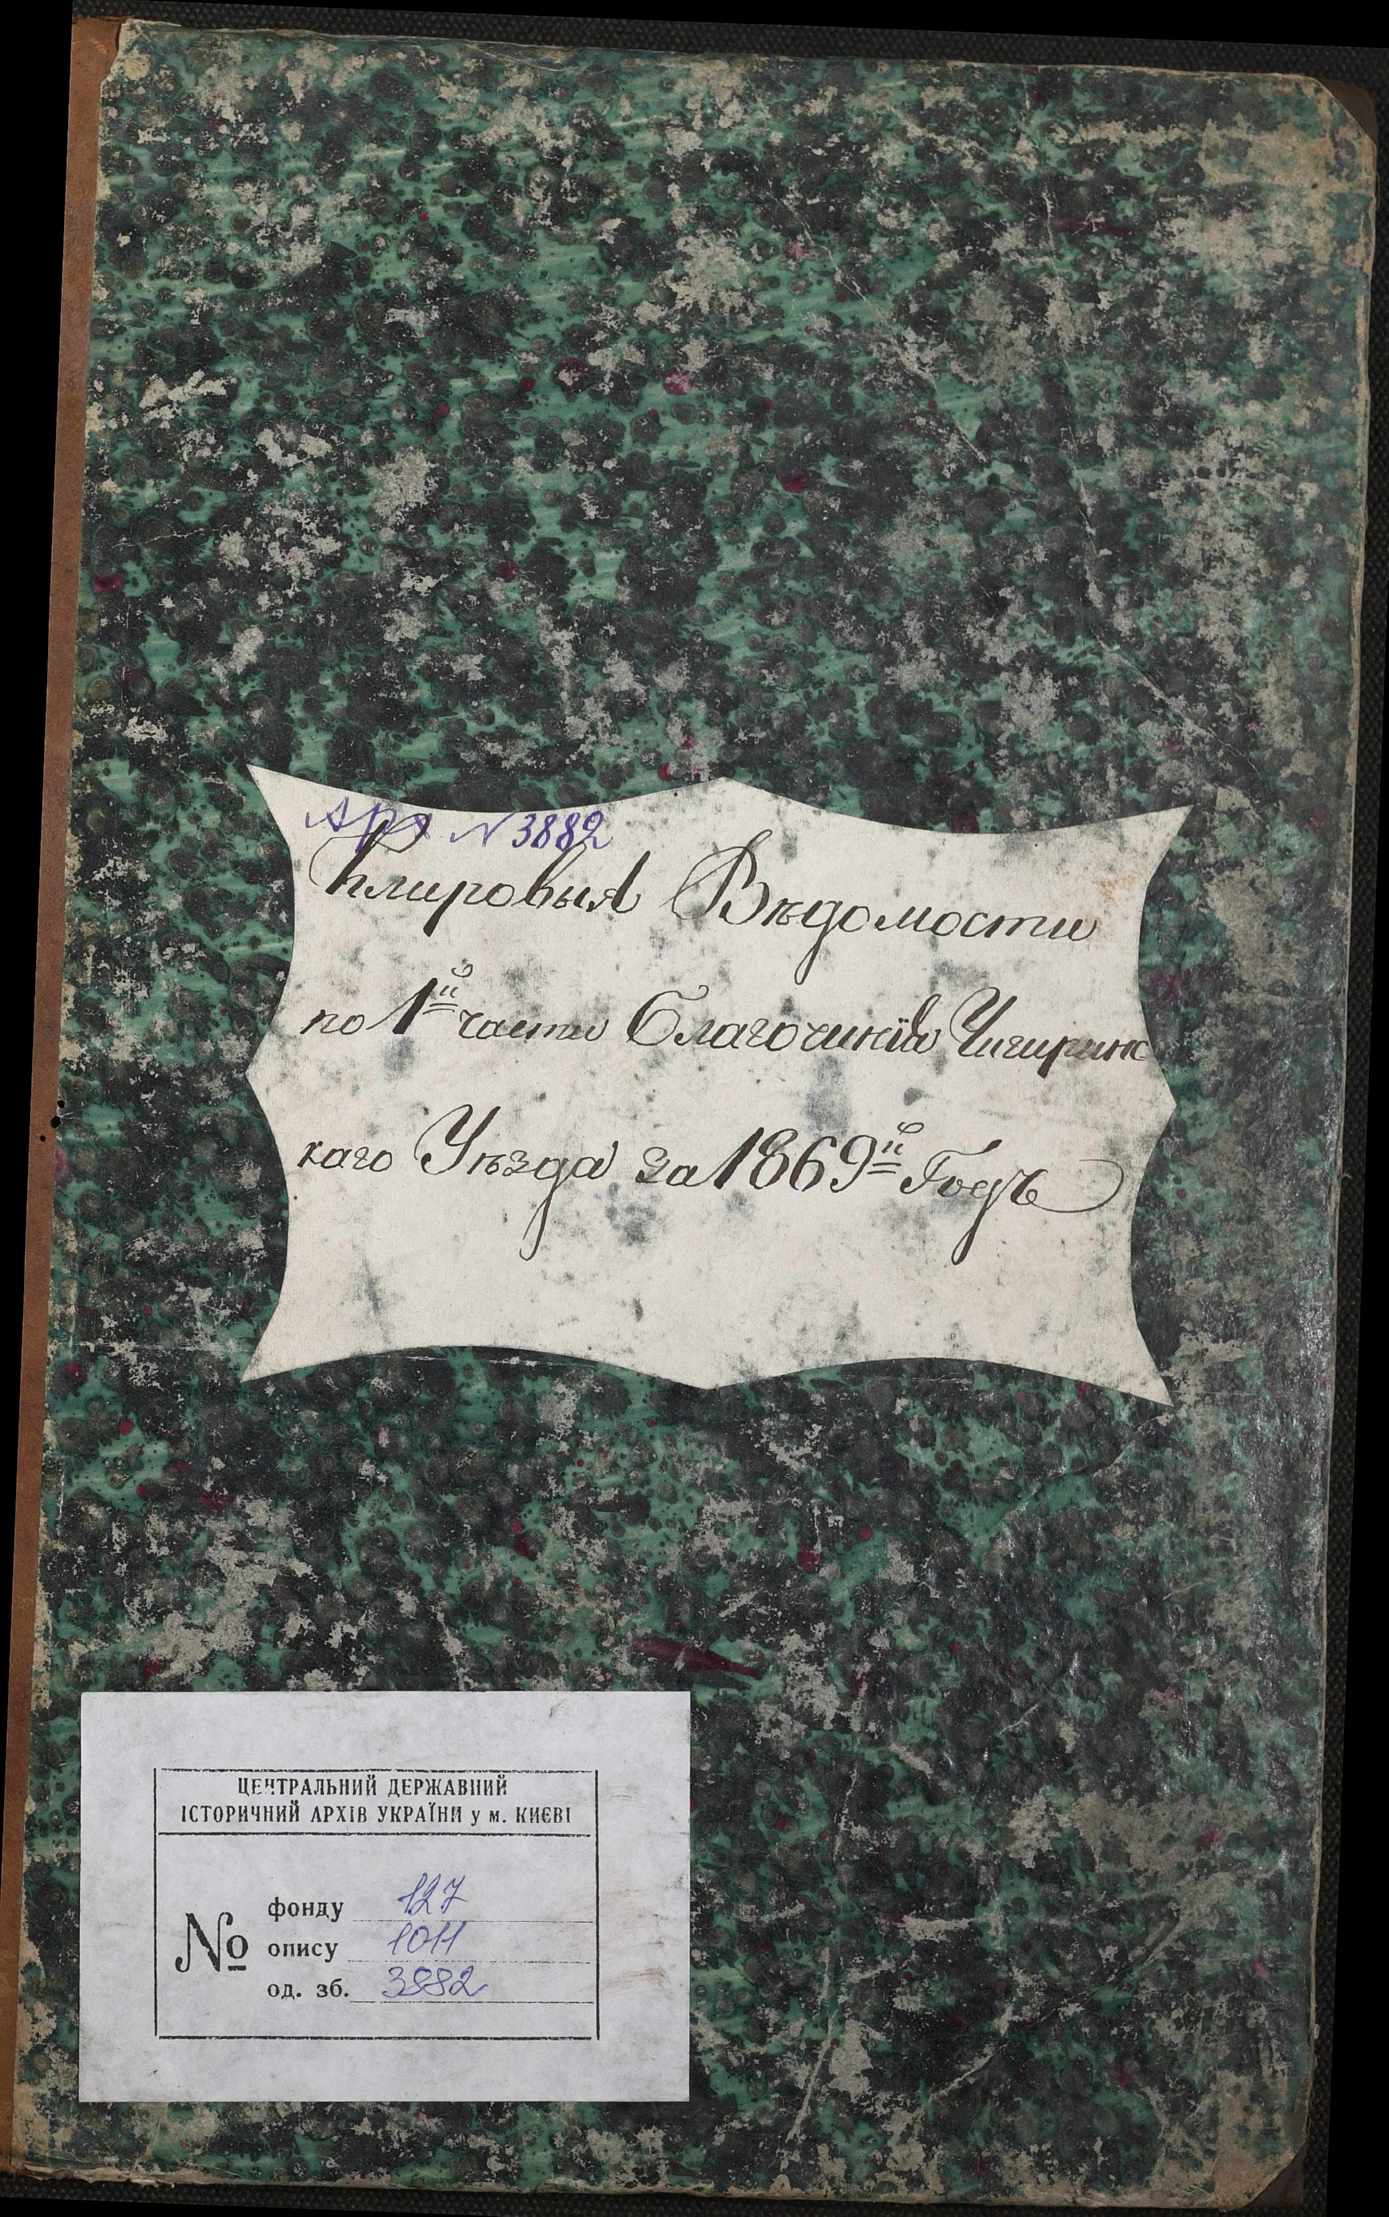 Арх N 3882
Клировыя Вѣдомости
по 1й части Благочинія Чигиринс
каго Уѣзда за 1869й Годъ
ЦЕНТРАЛЬНИЙ ДЕРЖАВНИЙ
ІСТОРИЧНИЙ АРХІВ УКРАЇНИ у м. КИЄВІ
№
фонду 127
опису 1011
од. зб. 3882